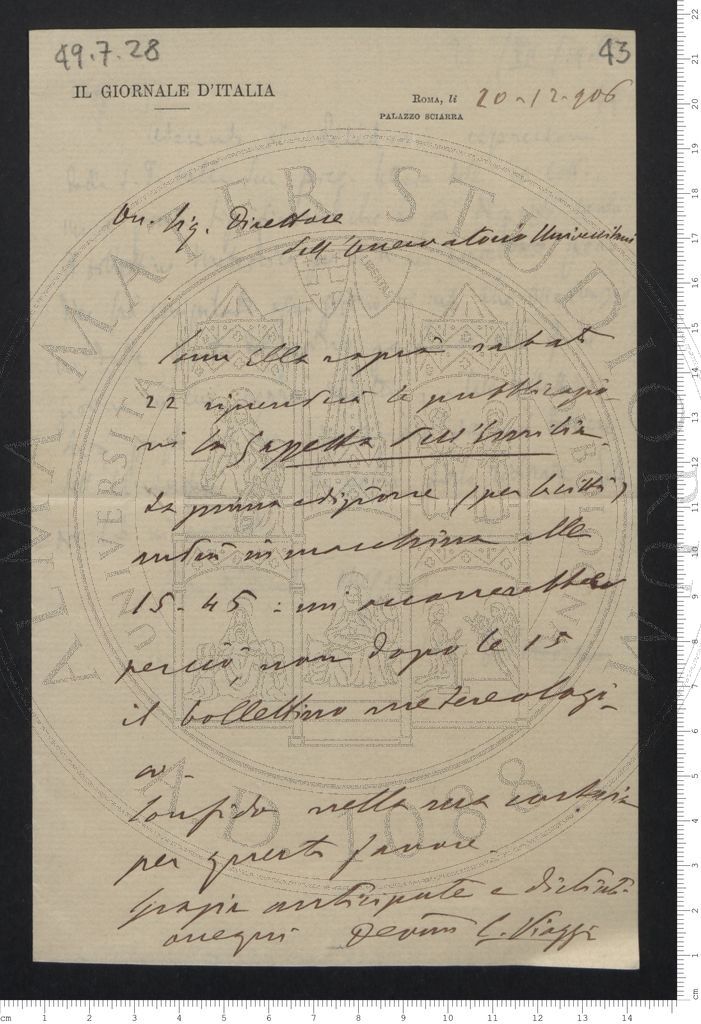 49.7.28
43
IL GIORNALE D'ITALIA
ROMA, li 20-12-906
PALAZZO SCIARRA
On. Sig. Direttore
dell'Osservatorio Universitario
Come Ella saprà sabato
22 riprenderà le pubblicazio
ni la Gazzetta dell'Emilia.
La prima edizione (per la città)
andrà in macchina alle
15-45: mi occorrerebbe
perciò, non dopo le 15
il bollettino metereologi-
co.
Confido nella sua cortesia
per questo favore.
Grazie anticipate e distinti
ossequi Devmo
ALMA MATER STUDIORUM
UNIVERSITÀ BOLOGNA
LIBERTAS
A.D. 1088
cm 1 2 3 4 5 6 7 8 9 10 11 12 13 14
22
21
20
19
18
17
16
15
14
13
12
11
10
9
8
7
6
5
4
3
2
1
cm